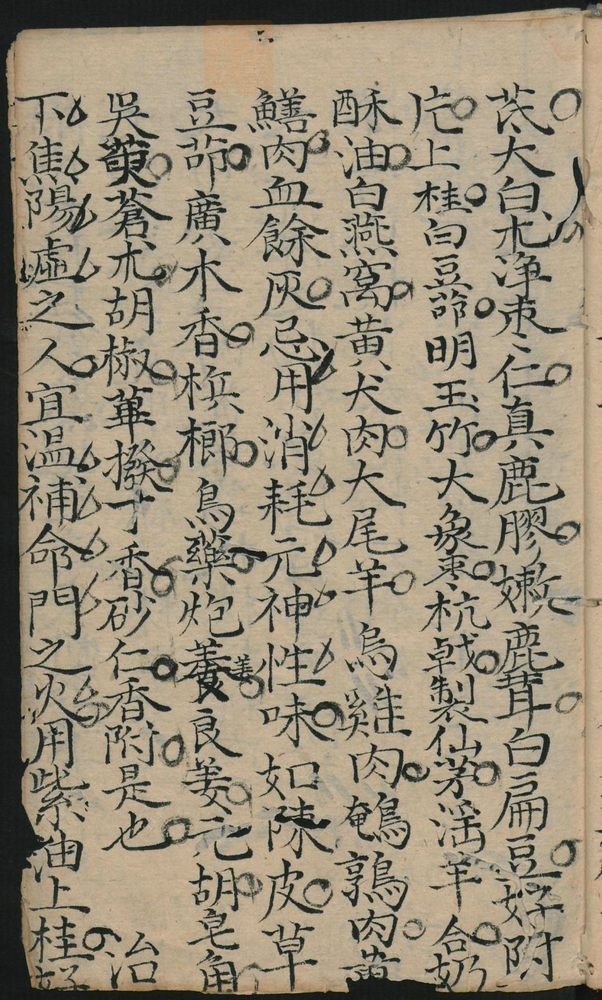 芪大白朮淨枣仁真鹿膠嫩鹿茸白扁豆好附
片上桂白豆莭明玉竹大象枣杭戟製仙茅滛羊合奶
酥油白燕窝黄犬肉大尾羊烏雞肉鵪鶉肉黄
鱔肉血餘灰忌用消耗元神性味如陳皮草
豆莭廣木香梹榔烏藥炮姜良姜元胡皂角
吳萸蒼朮胡椒蓽撥丁香砂仁香附是也 治
下焦陽虛之人宜温補命門之火用紫油上桂好